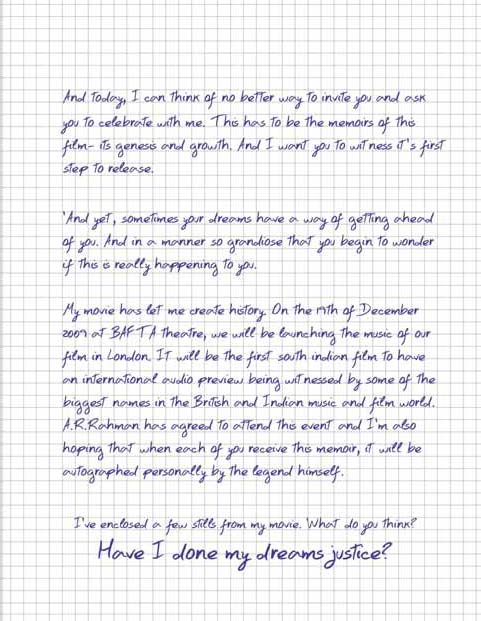 And today, I can think of no better way to invite you and ask
you to celebrate with me. This has to be the memoirs of this
film- its genesis and growth. And I want you to witness it's first
step to release.
'And yet, sometimes your dreams have a way of getting ahead
of you. And in a manner so grandiose that you begin to wonder
if this is really happening to you.
My movie has let me create history. On the 19th of December
2009 at BAFTA theatre, we will be launching the music of our
film in London. It will be the first south indian film to have
an international audio preview being witnessed by some of the
biggest names in the British and Indian music and film world.
A.R.Rahman has agreed to attend this event and I'm also
hoping that when each of you receive this memoir, it will be
autographed personally by the legend himself.
I've enclosed a few stills from my movie. What do you think?
Have I done my dreams justice?